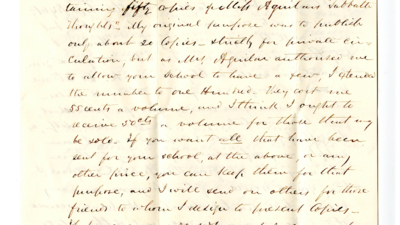 taining fifty copies of Miss Aguilars Sabbath
Thoughts". My original purpose was to publish
only about 20 copies - strictly for private cir-
culation, but as Mrs. Aguilar authorised me
to allow your school to have a few, I extended
the number to one Hundred. They cost me
55 cents a volume, and I think I ought to
receive 50cts a volume for those that may
be sold. If you want all that have been
sent for your school, at the above, or any
other price, you can keep them for that
purpose, and I will send on others for those
friends to whom I design to present copies -